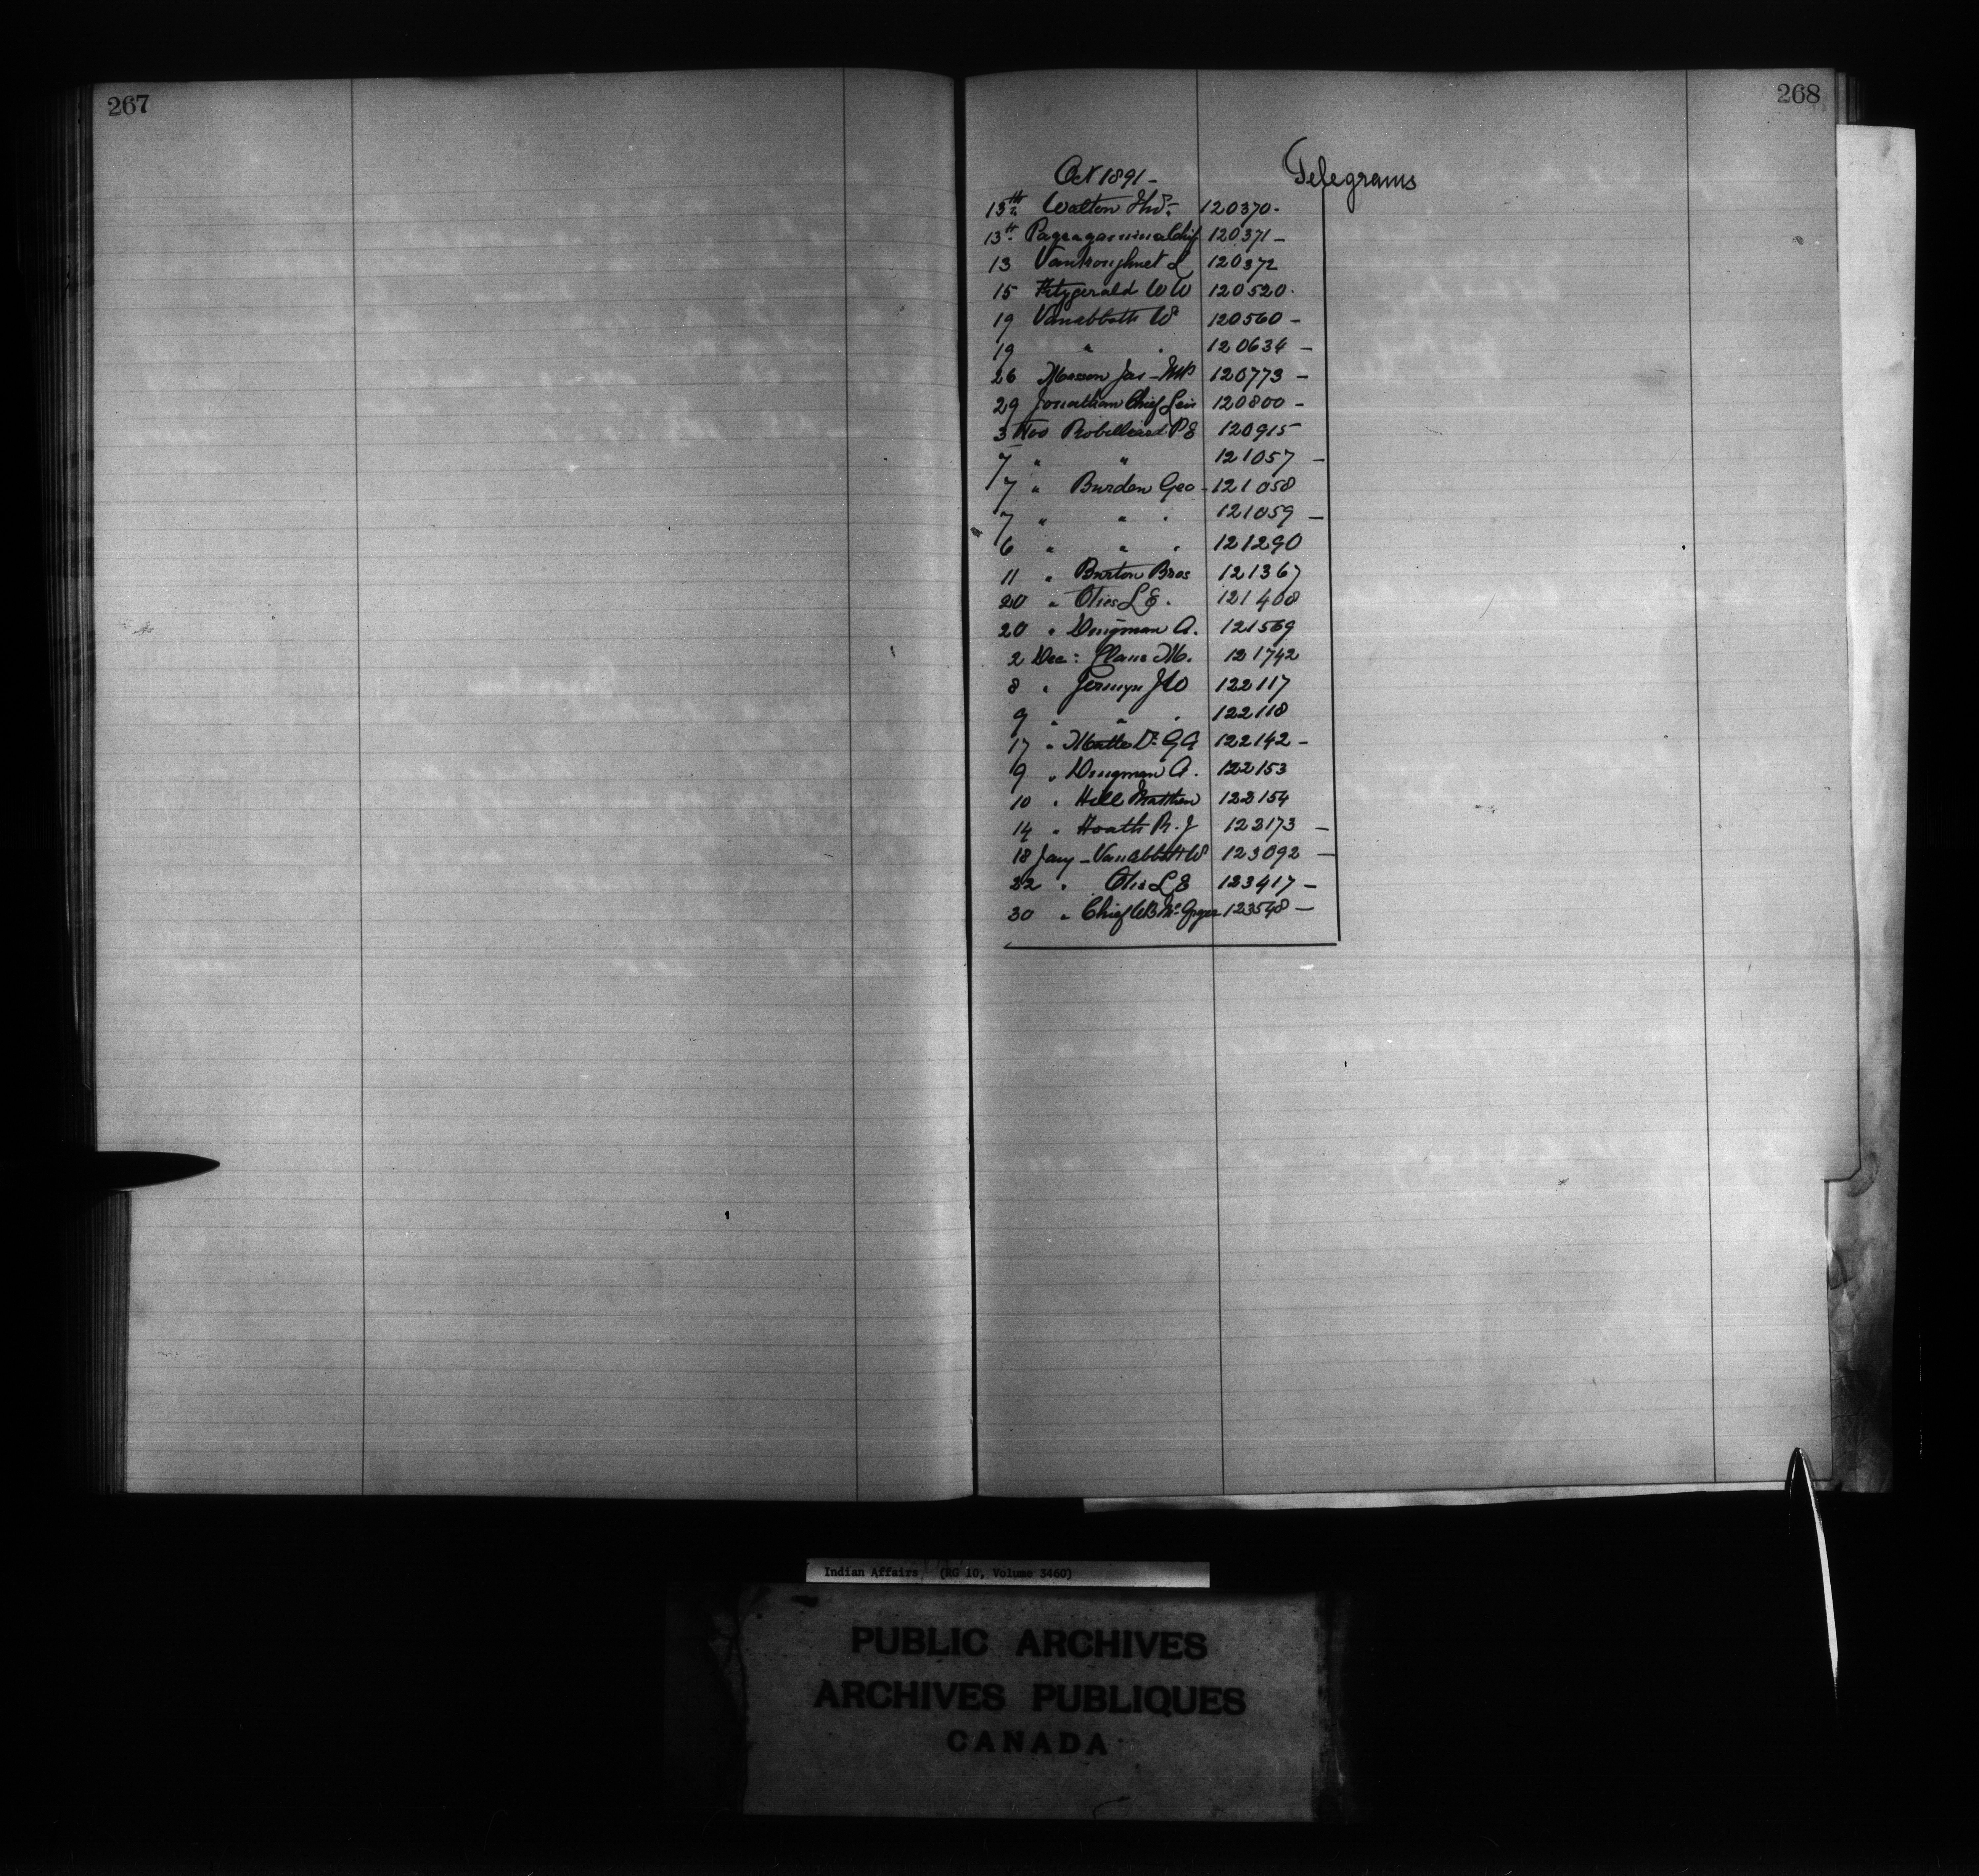 267
268
Oct 1891 -
Telegrams
13th Walton Thos. 120370 -
13th Chief 120371 -
13 Vankoughnet L 120372
15 Fitzgerald W W 120520 -
19 Vanabbott W 120560 -
19 " " 120634 -
26 Masson Jas - MP 120773 -
29 Jonathan Chief Levi 120800 -
3 Nov Robillard P E 120915
7 " " 121057 -
7 " Burden Geo - 121058
7 " " " 121059 -
6 " " " 121290
11 " Burton Bros 121367
20 " Otis L E. 121408
20 " Dingman A. 121569
2 Dec: Claus M. 121742
8 " Jermyn J W 122117
9 " " " 122118
17 " Dr G A 122142 -
9 " Dingman A. 122153
10 " Hill Matthew 122154
14 " Hoath R. J 122173 -
18 Jany - Vanabbott W 123092 -
22 " Otis L E 123417 -
30 " Chief W B McGregor 123548 -
Indian Affairs (RG 10, Volume 3460)
PUBLIC ARCHIVES
ARCHIVES PUBLIQUES
CANADA